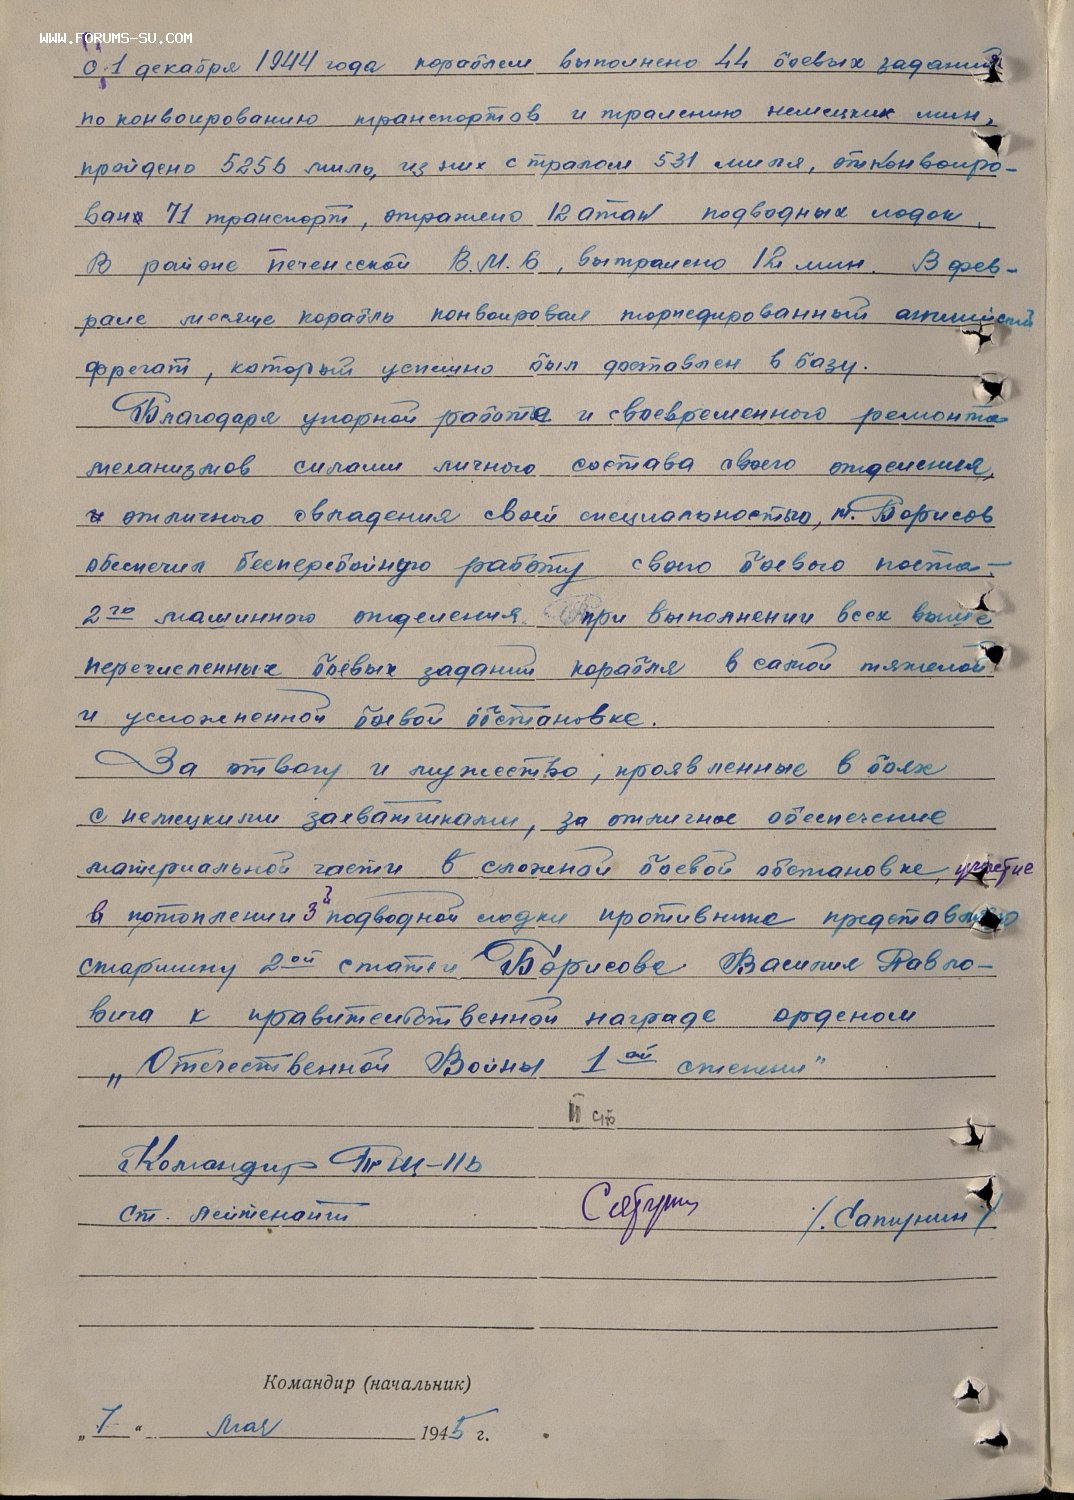 WWW.FORUMS-SU.COM
С 1 декабря 1944 года кораблем выполнено 44 боевых заданий
по конвоированию транспортов и тралению немецких мин,
пройдено 5256 миль, из них с тралом 531 миля, отконвоиро-
ван 71 транспорт, отражено 12 атак подводных лодок.
В районе Печенгской В.М.Б, вытралено 12 мин. В фев-
рале месяце корабль конвоировал торпедированный английский
фрегат, который успешно был доставлен в базу.
Благодаря упорной работе и своевременного ремонта
механизмов силами личного состава своего отделения,
и отличного овладения своей специальностью, т. Борисов
обеспечил бесперебойную работу своего боевого поста-
2го машинного отделения при выполнении всех выше
перечисленных боевых заданий корабля в самой тяжелой
и усложненной боевой обстановке.
За отвагу и мужество, проявленные в боях
с немецкими захватчиками, за отличное обеспечение
материальной части в сложной боевой обстановке, участие
в потоплении 3й подводной лодки противника представляю
старшину 2ой статьи Борисова Василия Павло-
вича к правительственной награде орденом
„Отечественной Войны 1ой степени"
II ст
Командир ТЩ-116
ст. лейтенант /Бабушкин/
Командир (начальник)
„7" мая 1945 г.